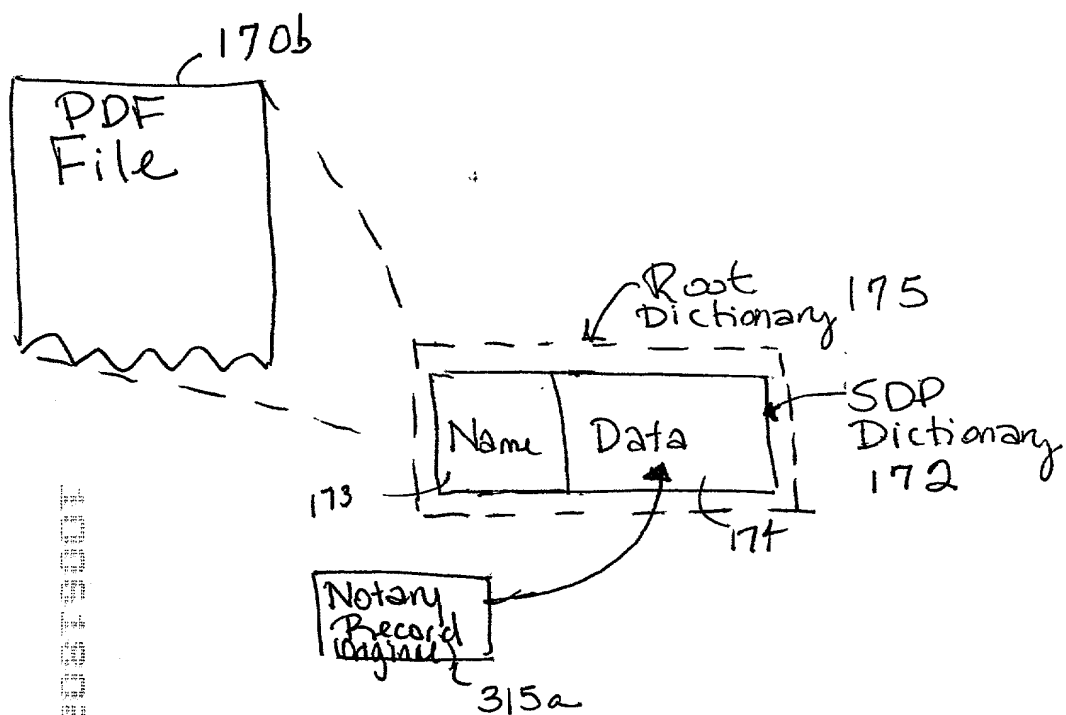 170b
PDF
File
Root
Dictionary 175
SDP
Dictionary
172
Name
Data
173
174
Notary
Record
315a